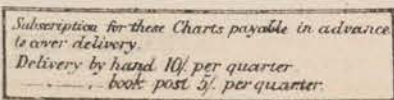 Subscription for these Charts payable in advance
to cover delivery.
Delivery by hand 10/. per quarter
........ , book post 5/. per quarter.